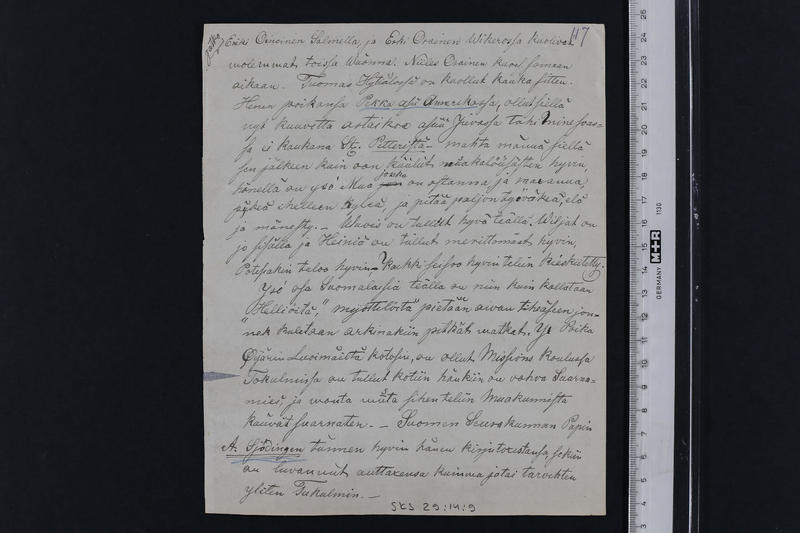 117
Erki Oinoinen Salmella, ja Erki Orainen Wikerossa kuolivat
molemmat toissa Wuonna. Niiles Orainen kuol samaan
aikaan. Tuomas Hyttälosse on kuollut kauka sitten.
Henen poikansa Pekka asu Amerikassa, ollut siellä
nyt kuuvetta astaikoa asuu Juvassa tahi Minesoas=
sa ei kaukana St. Petteristä – mahta männä siellä
sen jälkeen kuin oon kuulut hyvin,
hänellä on yso Mua jonka on ostanna, ja
ja pitää paljon työväkeä, elä
ja mänesty. – Wuosi on tullut hyvä täällä. Wiljat on
jo sisälla ja Heiniä on tullut merittomast hyvin,
Potissakin teloo hyvin, Kaikki seisoo hyvin teliin
Yso osa Suomalaisia täälla on niin kuin kallutaan
"Helliöitä," myöttelöitä pietään aivan tihiäseen jon=
"nek kuletaan arkinakiin pitkät matkat. Yx Poika
Öijärin Luoimäeltä kotosin, on ollut Missions Koulussa
Tokulmissa on tullut kotiin hänkiin on vahva Saarna=
mies, ja monta muuta sihen teliin Muakunnista
käuvät suarnaten. – Suomen Seurakunnan Papin
A. Sjöðingen tunnen hyvin hänen kirjutoxistansa, sekiin
on luvannut auttaxensa kuinma jotai tarvihten
yliten Tukulmin. –
SKS 29:14:9
GERMANY M+R 1130